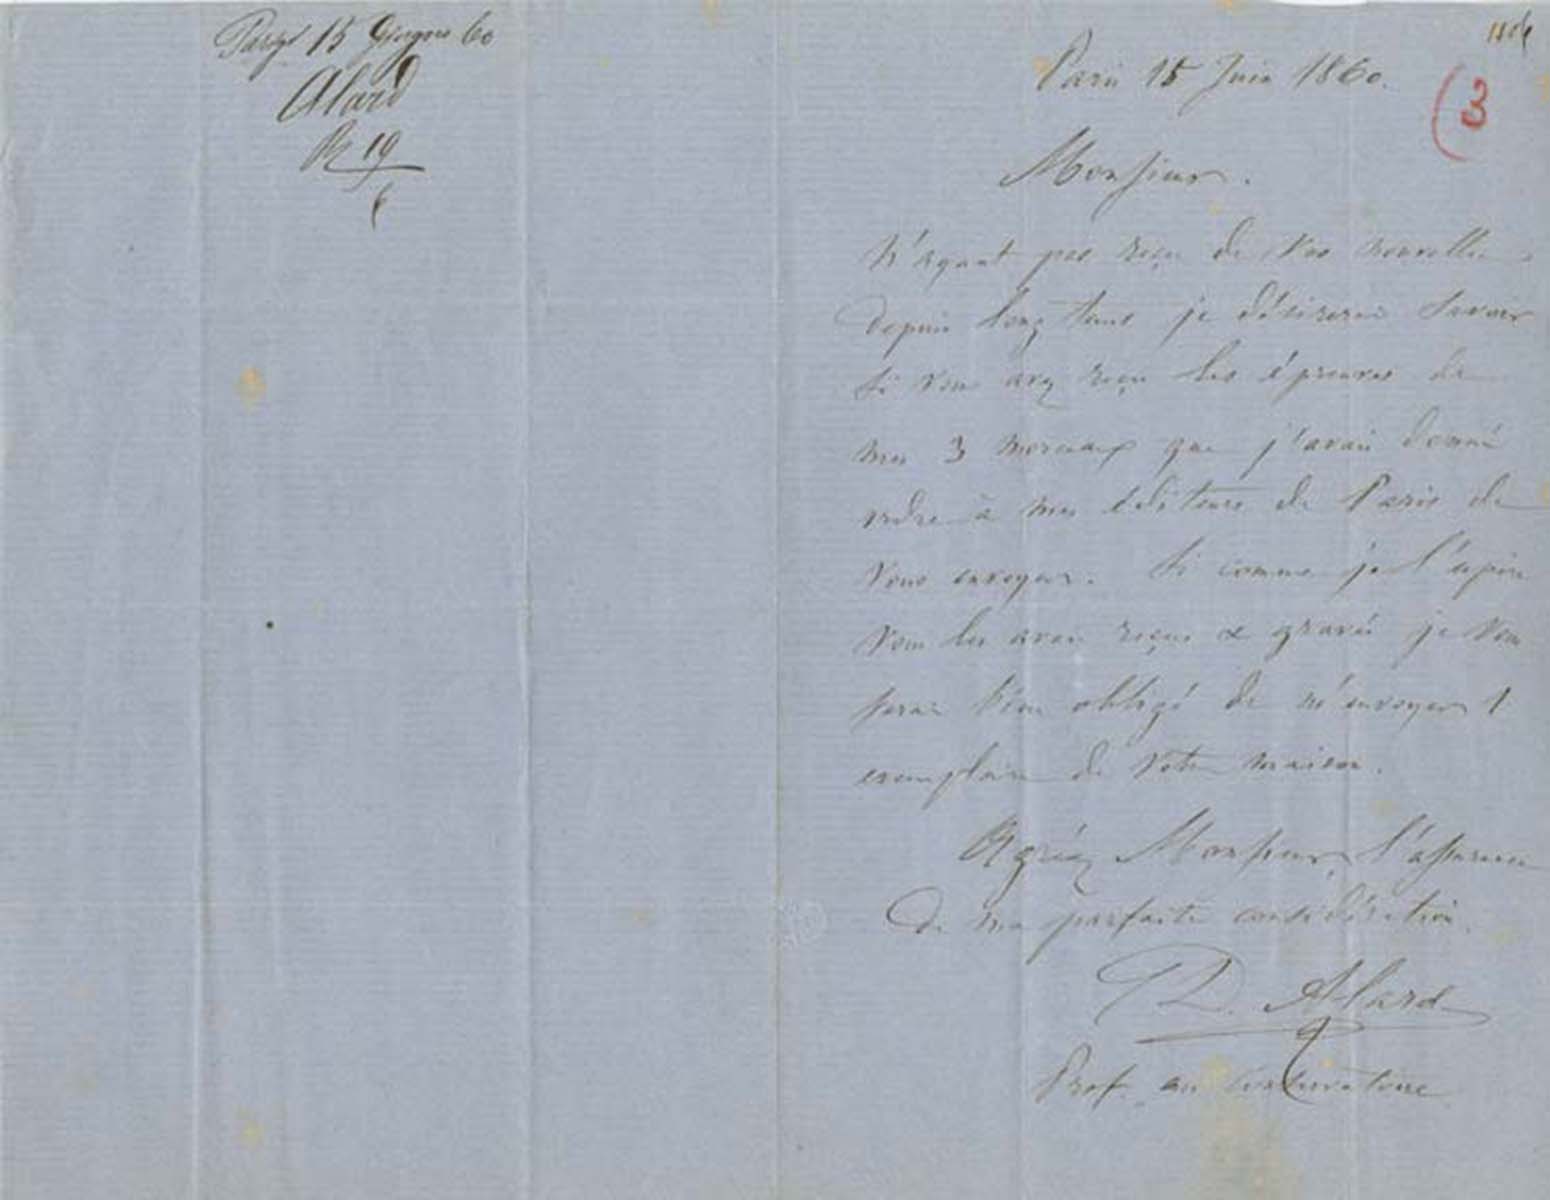 Parigi 15 Giugno 60
Alard
R 19
Paris 15 Juin 1860.
(3
Monsieur.
N'ayant pas reçu de vos nouvelles
depuis longtems je désirerai savoir
si vous avez reçu les épreuves de
mes 3 morceaux que j'avais donné
ordre à mes éditeurs de Paris de
vous envoyer. Si comme je l'espère
vous les avez reçus & gravés je vous
serai bien obligé de m'envoyer 1
exemplaire de votre maison.
Agréez Monsieur, l'assurance
de ma parfaite considération.
D. Alard
Prof. au Conservatoire